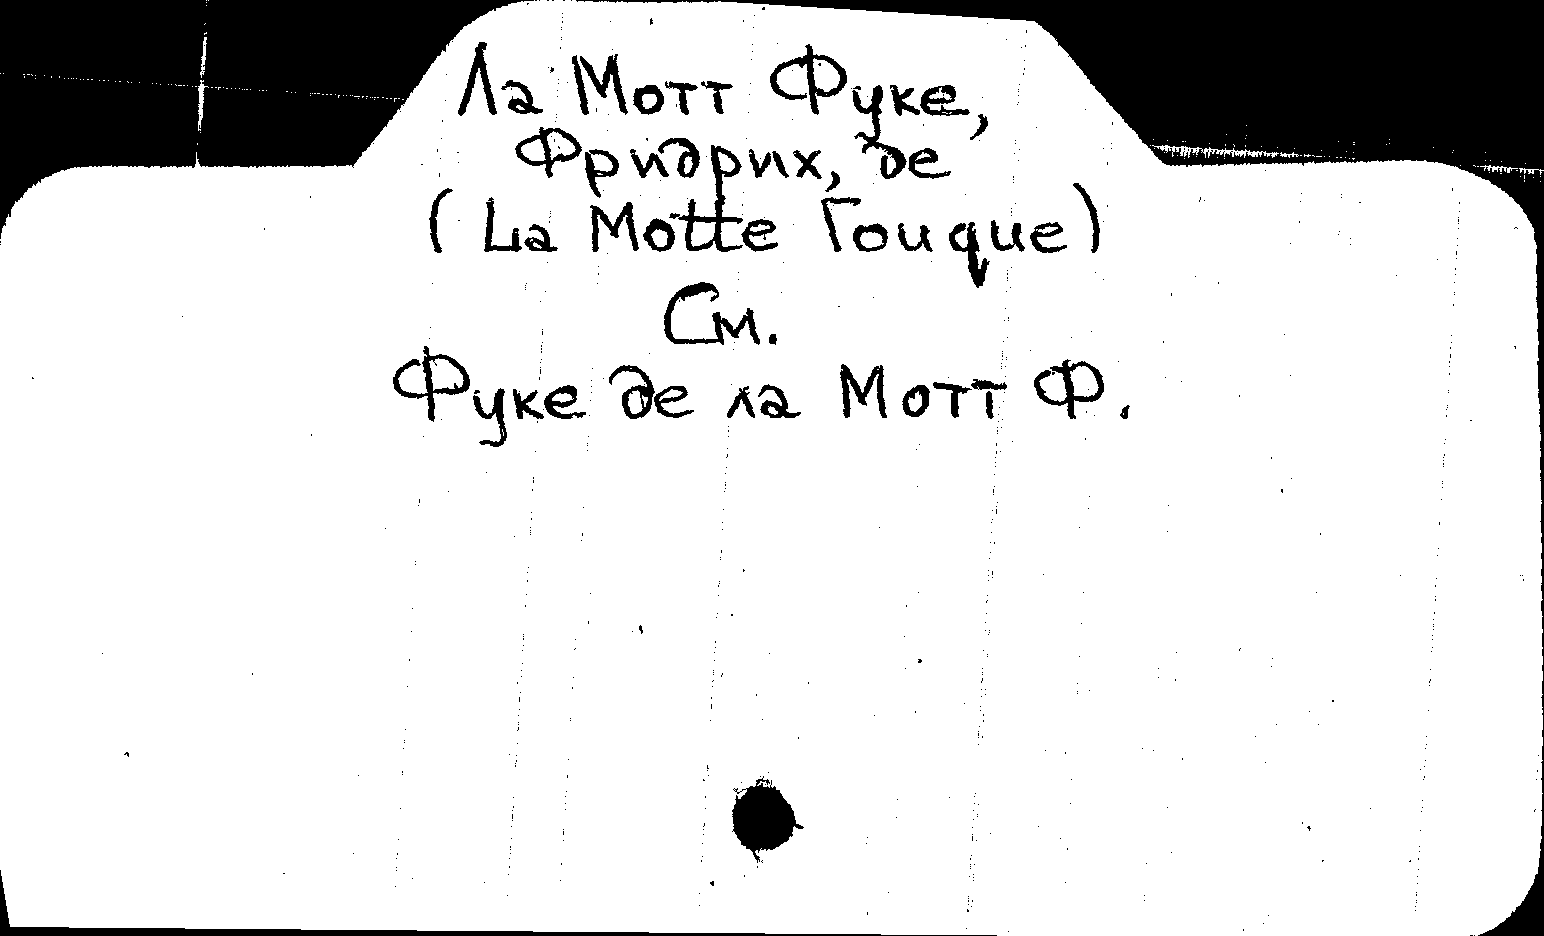 Ла Мотт Фуке,
Фридрих, де
(La Motte Fouque)
См.
Фуке де ла Мотт Ф.